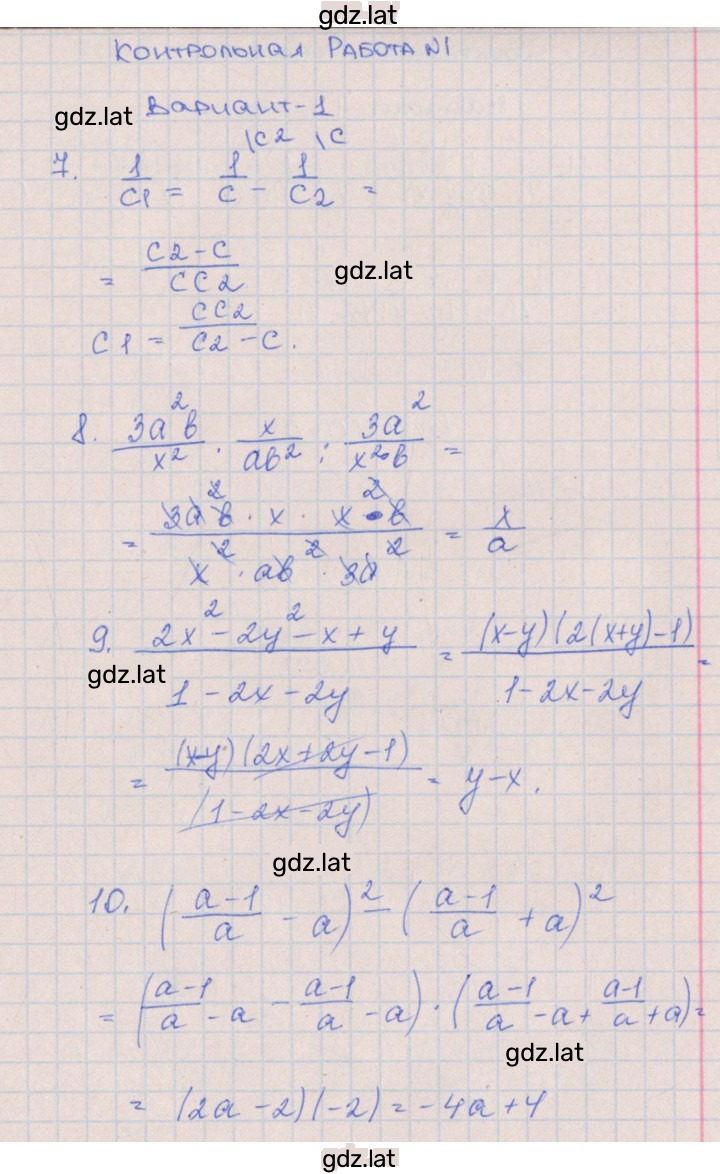 gdz.lat
Контрольная работа N1
Вариант-1
gdz.lat
\c2 \c
7. 1/c1 = 1/c - 1/c2 =
= (c2-c)/(cc2)
gdz.lat
c1 = cc2/(c2-c).
8. 3a²b/x² · x/ab² : 3a²/x²b =
= (3a²b · x · x² · b)/(x² · ab² · 3a²) = x/a
9. (2x²-2y²-x+y)/(1-2x-2y) = (x-y)(2(x+y)-1)/(1-2x-2y) =
gdz.lat
= (x-y)(2x+2y-1)/(1-2x-2y) = y-x.
gdz.lat
10. ((a-1)/a - a)² - ((a-1)/a + a)²
= ((a-1)/a - a - (a-1)/a - a) · ((a-1)/a - a + (a-1)/a + a) =
gdz.lat
= (2a-2)(-2) = -4a+4
gdz.lat